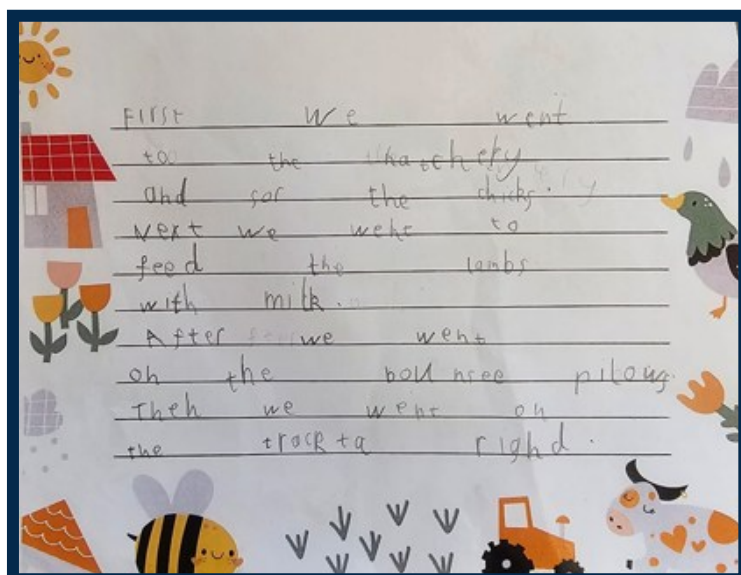 First we went
to the hatchery
and sor the chicks.
Next we went to
feed the lambs
with milk.
After we went
on the bounsee pilows.
Then we went on
the trackta right.